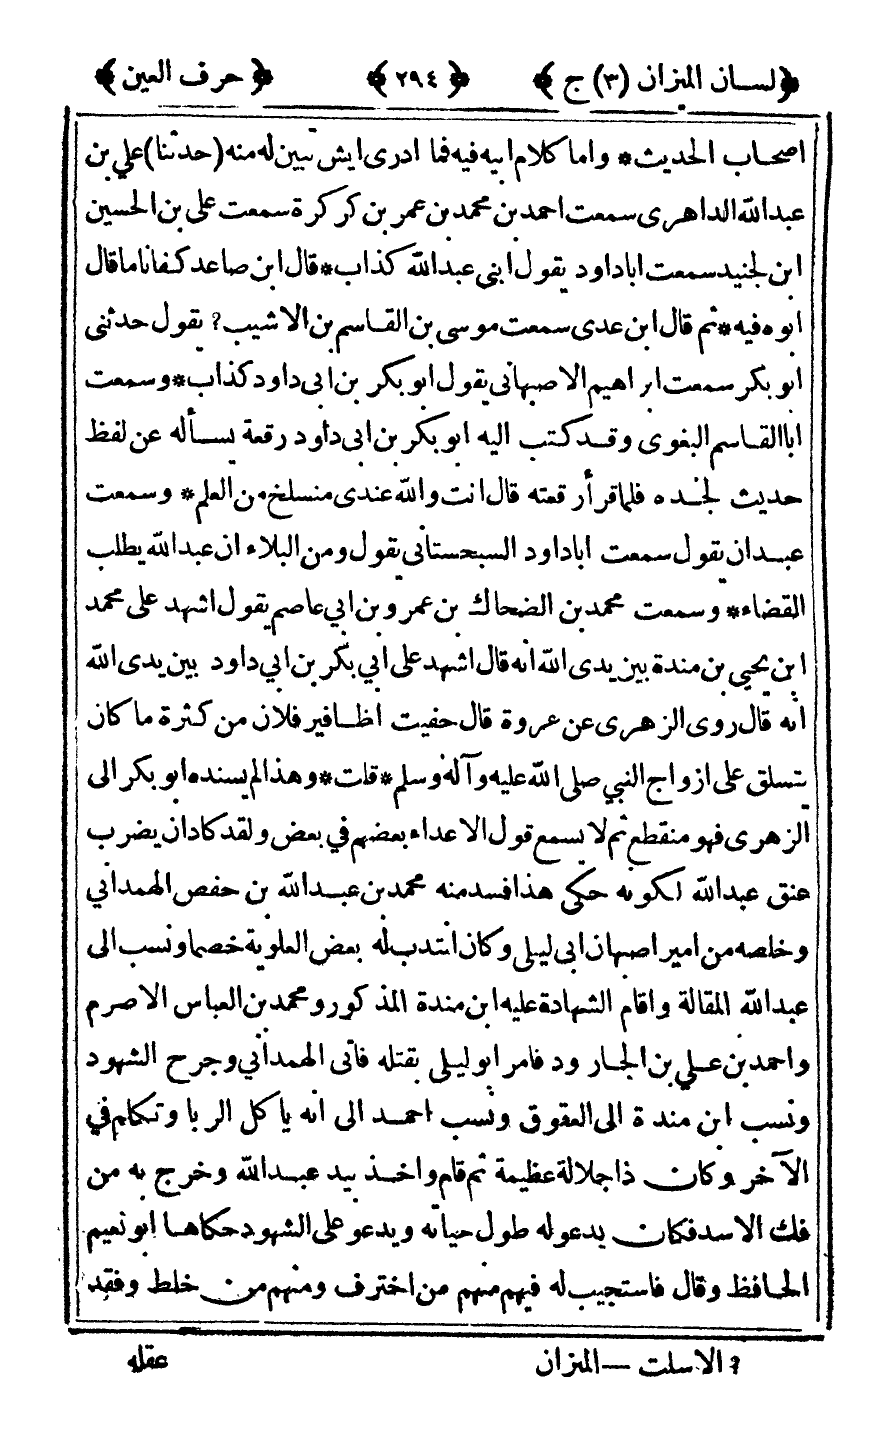 ﴿ لسان الميزان (٣) ج ﴾ ﴿ ٢٩٤ ﴾ ﴿ حرف العين ﴾
اصحاب الحديث * واما كلام ابيه فيه فما ادرى ايش تبين له منه (حدثنا) علي بن
عبدالله الداهرى سمعت احمد بن محمد بن عمر بن كركرة سمعت على بن الحسين
ابن الجنيد سمعت اباداود يقول ابنى عبدالله كذاب * قال ابن صاعد كفانا ماقال
ابوه فيه * ثم قال ابن عدى سمعت موسى بن القاسم بن الاشيب ? يقول حدثنى
ابو بكر سمعت ابراهيم الاصبهانى يقول ابو بكر بن ابى داود كذاب * وسمعت
اباالقاسم البغوى وقد كتب اليه ابو بكر بن ابى داود رقعة يسأله عن لفظ
حديث لجده فلما قرأ رقعته قال انت والله عندى منسلخ من العلم * وسمعت
عبدان يقول سمعت اباداود السجستانى يقول ومن البلاء ان عبدالله يطلب
القضاء * وسمعت محمد بن الضحاك بن عمرو بن ابي عاصم يقول اشهد على محمد
ابن يحيي بن مندة بين يدى الله انه قال اشهد على ابي بكر بن ابي داود بين يدى الله
انه قال روى الزهرى عن عروة قال حفيت اظافير فلان من كثرة ما كان
يتسلق على ازواج النبي صلى الله عليه وآله وسلم * قلت * وهذا لم يسنده ابو بكر الى
الزهرى فهو منقطع ثم لا يسمع قول الاعداء بعضهم في بعض ولقد كاد ان يضرب
عنق عبدالله لكونه حكى هذا فسد منه محمد بن عبدالله بن حفص الهمداني
وخلصه من امير اصبهان ابى ليلى وكان انتدب له بعض العلوية خصما ونسب الى
عبدالله المقالة واقام الشهادة عليه ابن مندة المذكور ومحمد بن العباس الاصرم
واحمد بن علي بن الجارود فامر ابو ليلى بقتله فأتى الهمدانى وجرح الشهود
ونسب ابن مندة الى العقوق ونسب احمد الى انه ياكل الربا وتكلم في
الآخر وكان ذا جلالة عظيمة ثم قام واخذ بيد عبدالله وخرج به من
فك الاسد فكان يدعوله طول حياته ويدعو على الشهود حكاها ابو نعيم
الحافظ وقال فاستجيب له فيهم منهم من احترف ومنهم من خلط وفقد
? الاسلت — الميزان عقله